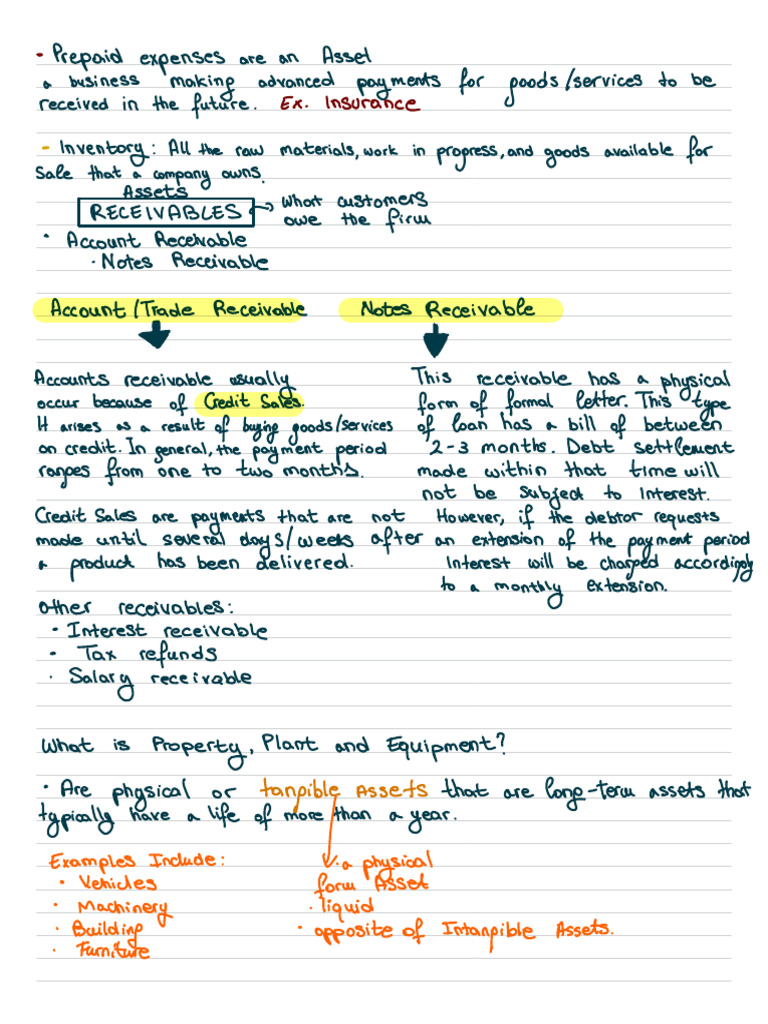 - Prepaid expenses are an Asset
a business making advanced payments for goods/services to be
received in the future. Ex. Insurance
- Inventory: All the raw materials, work in progress, and goods available for
Sale that a company owns.
Assets
RECEIVABLES → what customers
owe the firm
• Account Receivable
• Notes Receivable
Account/Trade Receivable
Accounts receivable usually
occur because of Credit Sales.
It arises as a result of buying goods/services
on credit. In general, the payment period
ranges from one to two months.
Credit Sales are payments that are not
made until several days/weeks after
a product has been delivered.
Notes Receivable
This receivable has a physical
form of formal letter. This type
of loan has a bill of between
2-3 months. Debt settlement
made within that time will
not be subject to Interest.
However, if the debtor requests
an extension of the payment period
Interest will be charged accordingly
to a monthly extension.
other receivables:
• Interest receivable
• Tax refunds
• Salary receivable
What is Property, Plant and Equipment?
• Are physical or tangible Assets that are long-term assets that
typically have a life of more than a year.
Examples Include:
• Vehicles
• Machinery
• Building
• Furniture
• a physical
form Asset
• liquid
• opposite of Intangible Assets.